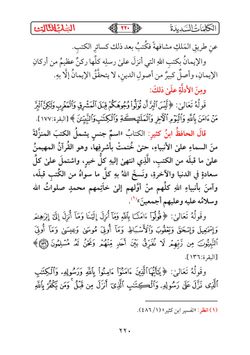 الكلمات السديدة
٢٢٠
عن طريق المَلكِ مشافهة فكُتبُ بعد ذلك كسائر الكتب.
والإيمانُ بكتب اللهِ التي أنزل علىٰ رسله كلِّها ركنٌ عظيمٌ من أركانِ
الإيمان، وأصلٌ كبيرٌ من أصولِ الدينِ، لا يتحققُ الإيمانُ إلَّا به.
ومن الأدلَّةِ علىٰ ذلك:
قَولُهُ تعالىٰ: ﴿لَيْسَ الْبِرَّ أَن تُوَلُّوا وُجُوهَكُمْ قِبَلَ الْمَشْرِقِ وَالْمَغْرِبِ وَلَٰكِنَّ الْبِرَّ
مَنْ آمَنَ بِاللَّهِ وَالْيَوْمِ الْآخِرِ وَالْمَلَائِكَةِ وَالْكِتَابِ وَالنَّبِيِّينَ﴾ [البقرة:١٧٧].
قال الحافظُ ابنُ كثيرٍ: الكتابُ: «اسمُ جنسٍ يشملُ الكتبَ المنزَّلةَ
مِنَ السماءِ علىٰ الأنبياءِ، حتىٰ خُتمتْ بأشرفِها، وهو القُرآنُ المهيمنُ
علىٰ ما قبلَه من الكتبِ، الَّذي انتهىٰ إليه كلُّ خيرٍ، واشتملَ علىٰ كلِّ
سعادةٍ في الدنيا والآخرةِ، ونَسخَ اللهُ به كلَّ ما سواهُ من الكُتبِ قبلَه،
وآمنَ بأنبياءِ اللهِ كلِّهم منْ أوَّلهم إلىٰ خاتِمِهم محمدٍ صلواتُ اللهِ
وسلامُه عليه وعليهم أجمعينَ»(١).
وقَولُهُ تعالىٰ: ﴿قُولُوا آمَنَّا بِاللَّهِ وَمَا أُنزِلَ إِلَيْنَا وَمَا أُنزِلَ إِلَىٰ إِبْرَاهِيمَ
وَإِسْمَاعِيلَ وَإِسْحَاقَ وَيَعْقُوبَ وَالْأَسْبَاطِ وَمَا أُوتِيَ مُوسَىٰ وَعِيسَىٰ وَمَا أُوتِيَ
النَّبِيُّونَ مِن رَّبِّهِمْ لَا نُفَرِّقُ بَيْنَ أَحَدٍ مِّنْهُمْ وَنَحْنُ لَهُ مُسْلِمُونَ ﴿١٣٦﴾﴾
[البقرة:١٣٦].
وقَولُهُ تعالىٰ: ﴿يَا أَيُّهَا الَّذِينَ آمَنُوا آمِنُوا بِاللَّهِ وَرَسُولِهِ وَالْكِتَابِ
الَّذِي نَزَّلَ عَلَىٰ رَسُولِهِ وَالْكِتَابِ الَّذِي أَنزَلَ مِن قَبْلُ وَمَن يَكْفُرْ بِاللَّهِ
(١) انظر: «تفسير ابن كثير» (١/ ٤٨٦).
٢٢٠